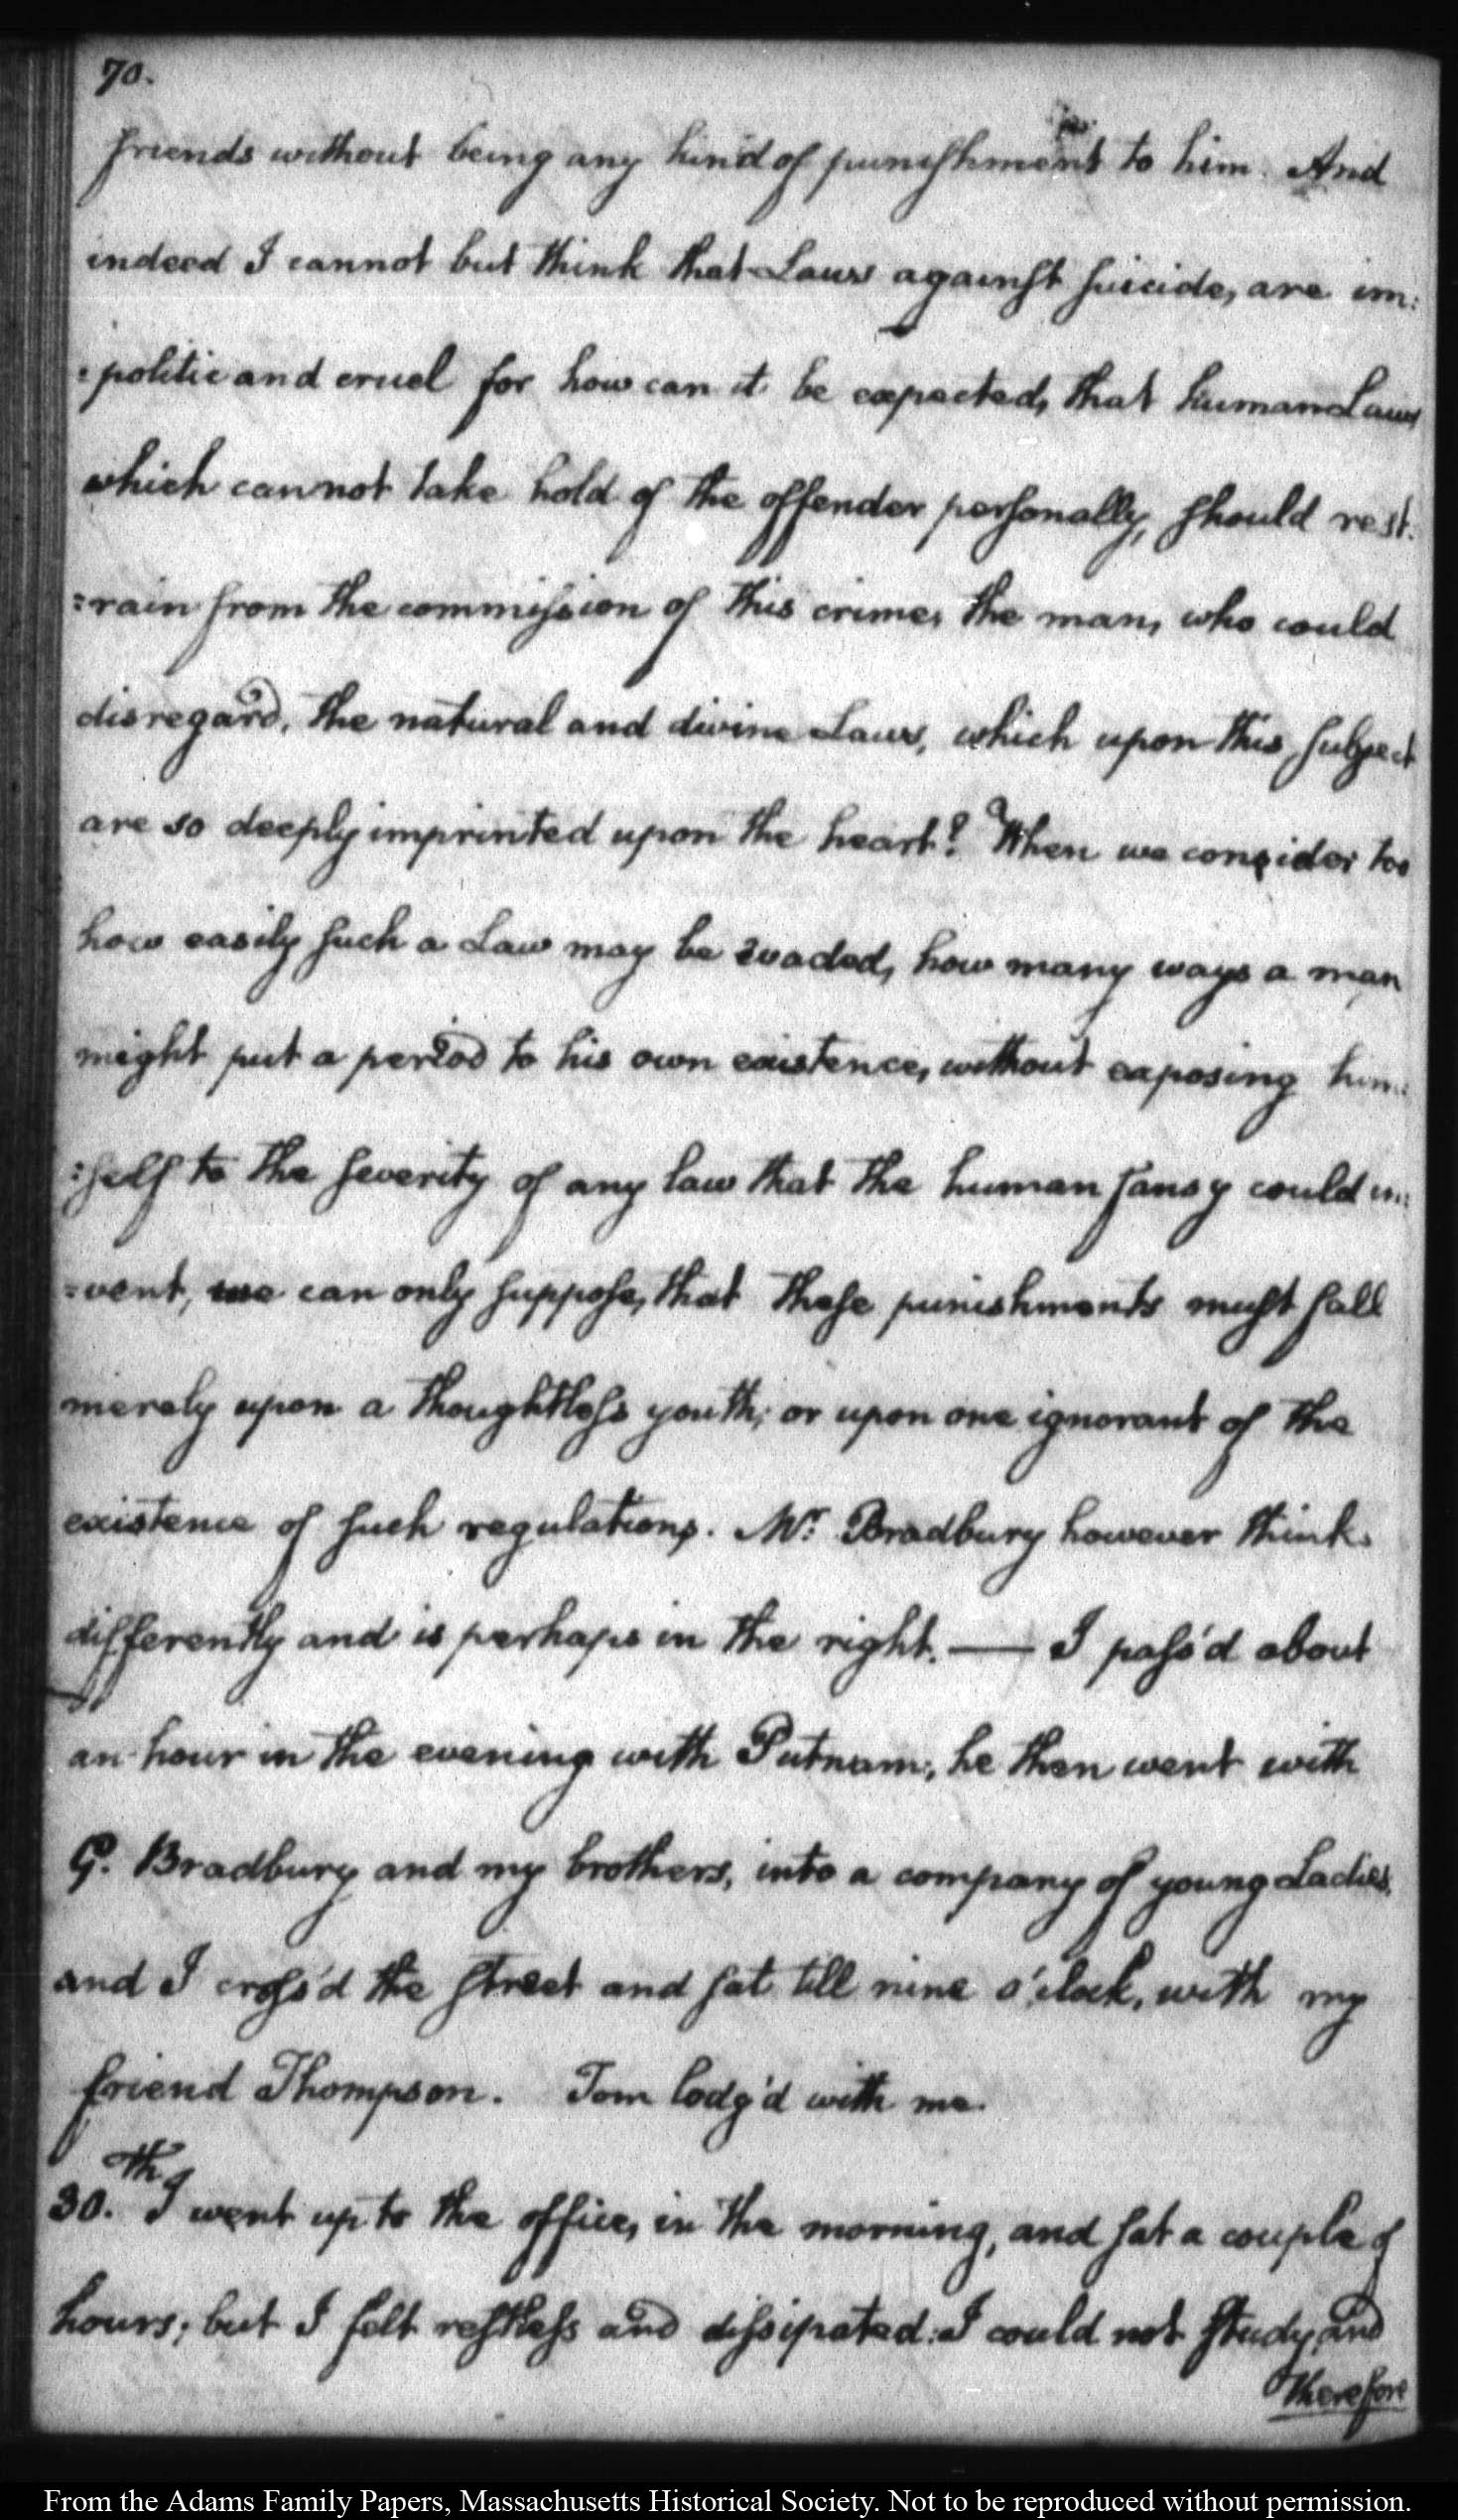 70.
friends without being any kind of punishment to him. And
indeed I cannot but think that Laws against suicide, are im:
:politic and cruel for how can it be expected, that human Laws
which cannot take hold of the offender personally, should rest:
:rain from the commission of this crime, the man, who could
disregard, the natural and divine Laws, which upon this subject
are so deeply imprinted upon the heart? When we consider too
how easily such a Law may be evaded, how many ways a man
might put a period to his own existence, without exposing him:
:self to the severity of any law that the human fancy could in:
:vent, we can only suppose, that these punishments must fall
merely upon a thoughtless youth; or upon one ignorant of the
existence of such regulations. Mr: Bradbury however thinks
differently and is perhaps in the right. — I pass'd about
an hour in the evening with Putnam; he then went with
G. Bradbury and my brothers, into a company of young Ladies,
and I cross'd the street and sat till nine o'clock, with my
friend Thompson. Tom lodg'd with me.
30.th I went up to the office, in the morning, and sat a couple of
hours; but I felt restless and dissipated: I could not study, and
therefore
From the Adams Family Papers, Massachusetts Historical Society. Not to be reproduced without permission.